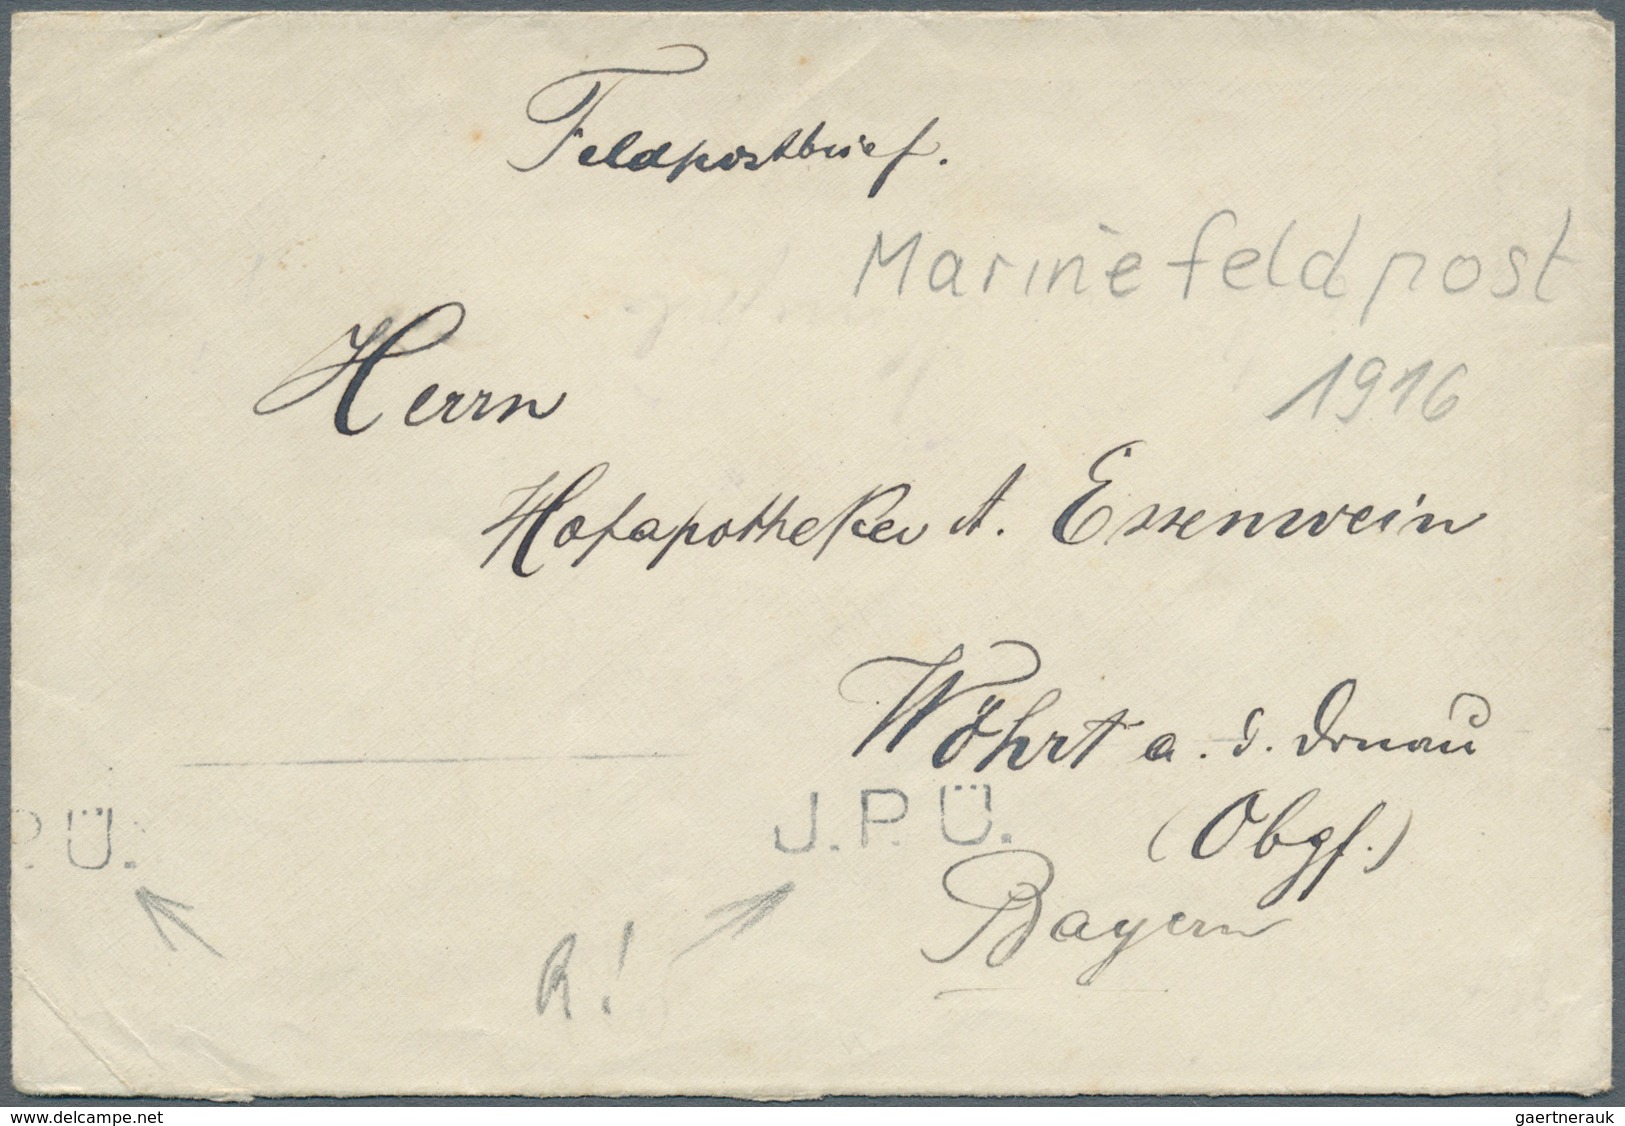 Feldpostbrief.
Marinefeldpost
1916
Herrn
Hofapotheker A. Essenwein
Wöhrt a. d. Donau
P.Ü.
J.P.Ü.
(Obgf.)
Bayern
R!
www.delcampe.net
gaertnerauk